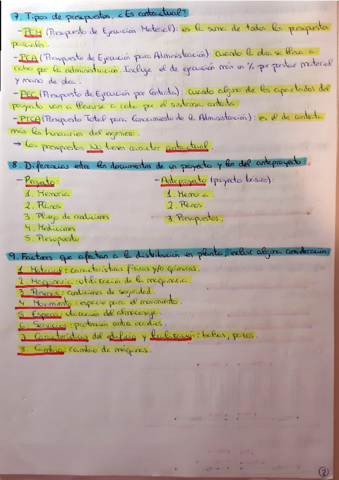 7. Tipos de presupuestos. ¿Es contractual?
- PEM (Presupuesto de Ejecución Material): es la suma de todos los presupuestos
parciales.
- PCA (Presupuesto de Ejecución para Administración): cuando la obra se lleva a
cabo por la administración. Incluye el de ejecución más un % por gastos material
y mano de obra.
- PEC (Presupuesto de Ejecución por Contrata): cuando alguno de los apartados del
proyecto van a llevarse a cabo por el sistema contrata.
- PTCA (Presupuesto Total para Conocimiento de la Administración): es el de contrata
más los honorarios del ingeniero.
→ Los presupuestos NO tienen carácter contractual.
8. Diferencias entre los documentos de un proyecto y los del anteproyecto.
- Proyecto:
1. Memoria
2. Planos
3. Pliego de condiciones
4. Mediciones
5. Presupuesto
- Anteproyecto (proyecto básico):
1. Memoria
2. Planos
3. Presupuestos.
9. Factores que afectan a la distribución en planta, incluir alguna consideración.
1. Material: características físicas y/o químicas.
2. Maquinaria: utilización de la maquinaria.
3. Personas: condiciones de seguridad.
4. Movimiento: espacio para el movimiento.
5. Espera: ubicación del almacenaje.
6. Servicios: protección
7. Características del edificio y localización:
8. Cambio: cambio de máquinas.
2